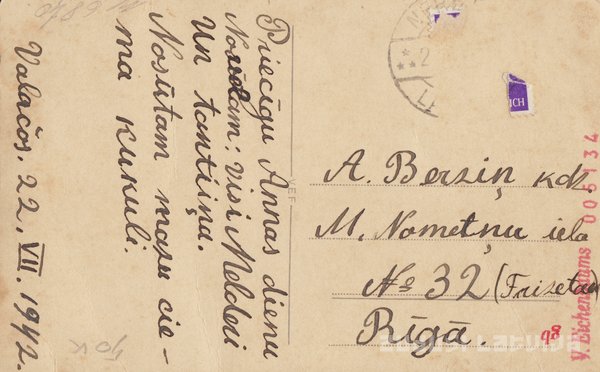 Priecīgu Annas dienu
Novēlam: Visi Melderi
Un tantiņa.
Nosūtam mazu cie-
ma kukuli.
Valačos. 22. VII. 1942.
A. Berziņ kdz.
M. Nometņu iela
№ 32 (Frizetava
Rīgā.
98
V. Eichenbaums 005134
ICH
40 K